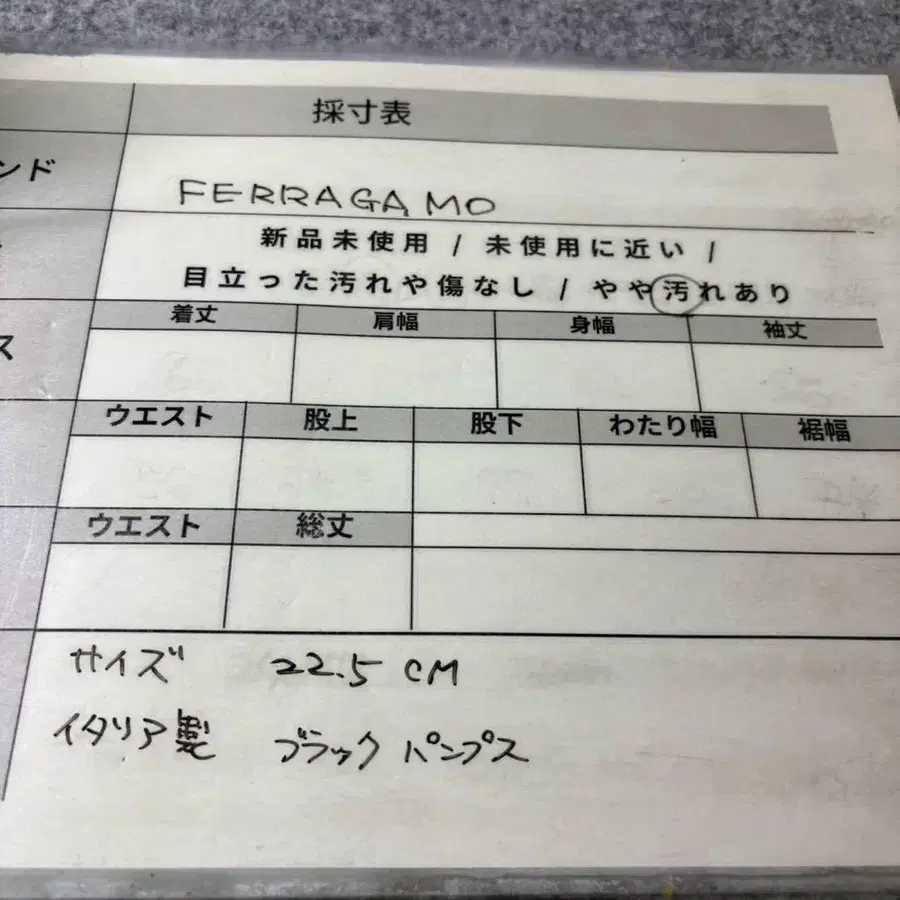 採寸表
ンド
FERRAGAMO
新品未使用 / 未使用に近い /
目立った汚れや傷なし / やや汚れあり
着丈 肩幅 身幅 袖丈
ス
ウエスト 股上 股下 わたり幅 裾幅
ウエスト 総丈
サイズ 22.5 CM
イタリア製 ブラック パンプス